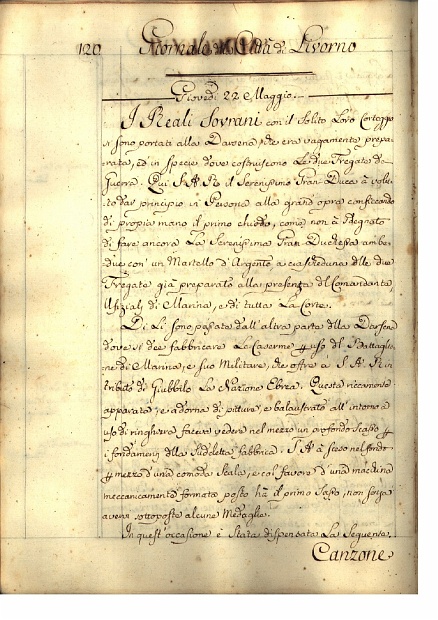 120 Giornale della Città di Livorno
Giovedì 22 Maggio.
I Reali Sovrani con il Solito Loro Corteggo
si sono portati alla Darsena, che era vagamente prepa-
rata, ed in specie dove costruiscono Le due Fregate da
Guerra. Qui S. A. R. il Serenissimo Gran Duca à volu-
to dar principio in Persona alla grand'opra conficcando
di propria mano il primo chiodo, come non à sdegnato
di fare ancora La Serenissima Gran Duchessa ambe-
due con un Martello d'Argento a ciascheduna delle due
Fregate già preparato alla presenza del Comandante,
Ufizial di Marina, e di tutta La Corte.
Di Lì sono passati dall'altra parte della Darsena
dove si dee fabbricare Le Caserme uso del Battaglio-
ne di Marina, e suo Militare, che offre a S. A. R. in
tributo di Giubbilo La Nazione Ebrea. Questa
apparata, e adorna di pitture, e balaustrato all'intorno a
uso di ringhiera faceva vedere nel mezzo un profondo scasso
i fondamenti della Suddetta fabbrica. S. A. è sceso nel fondo
mezzo d'una comoda Scala, e col favore d'una macchina
meccanicamente formata posto hà il primo Sasso, non senza
avervi sottoposte alcune Medaglie.
In quest'occasione è Stata dispensata La Seguente
Canzone